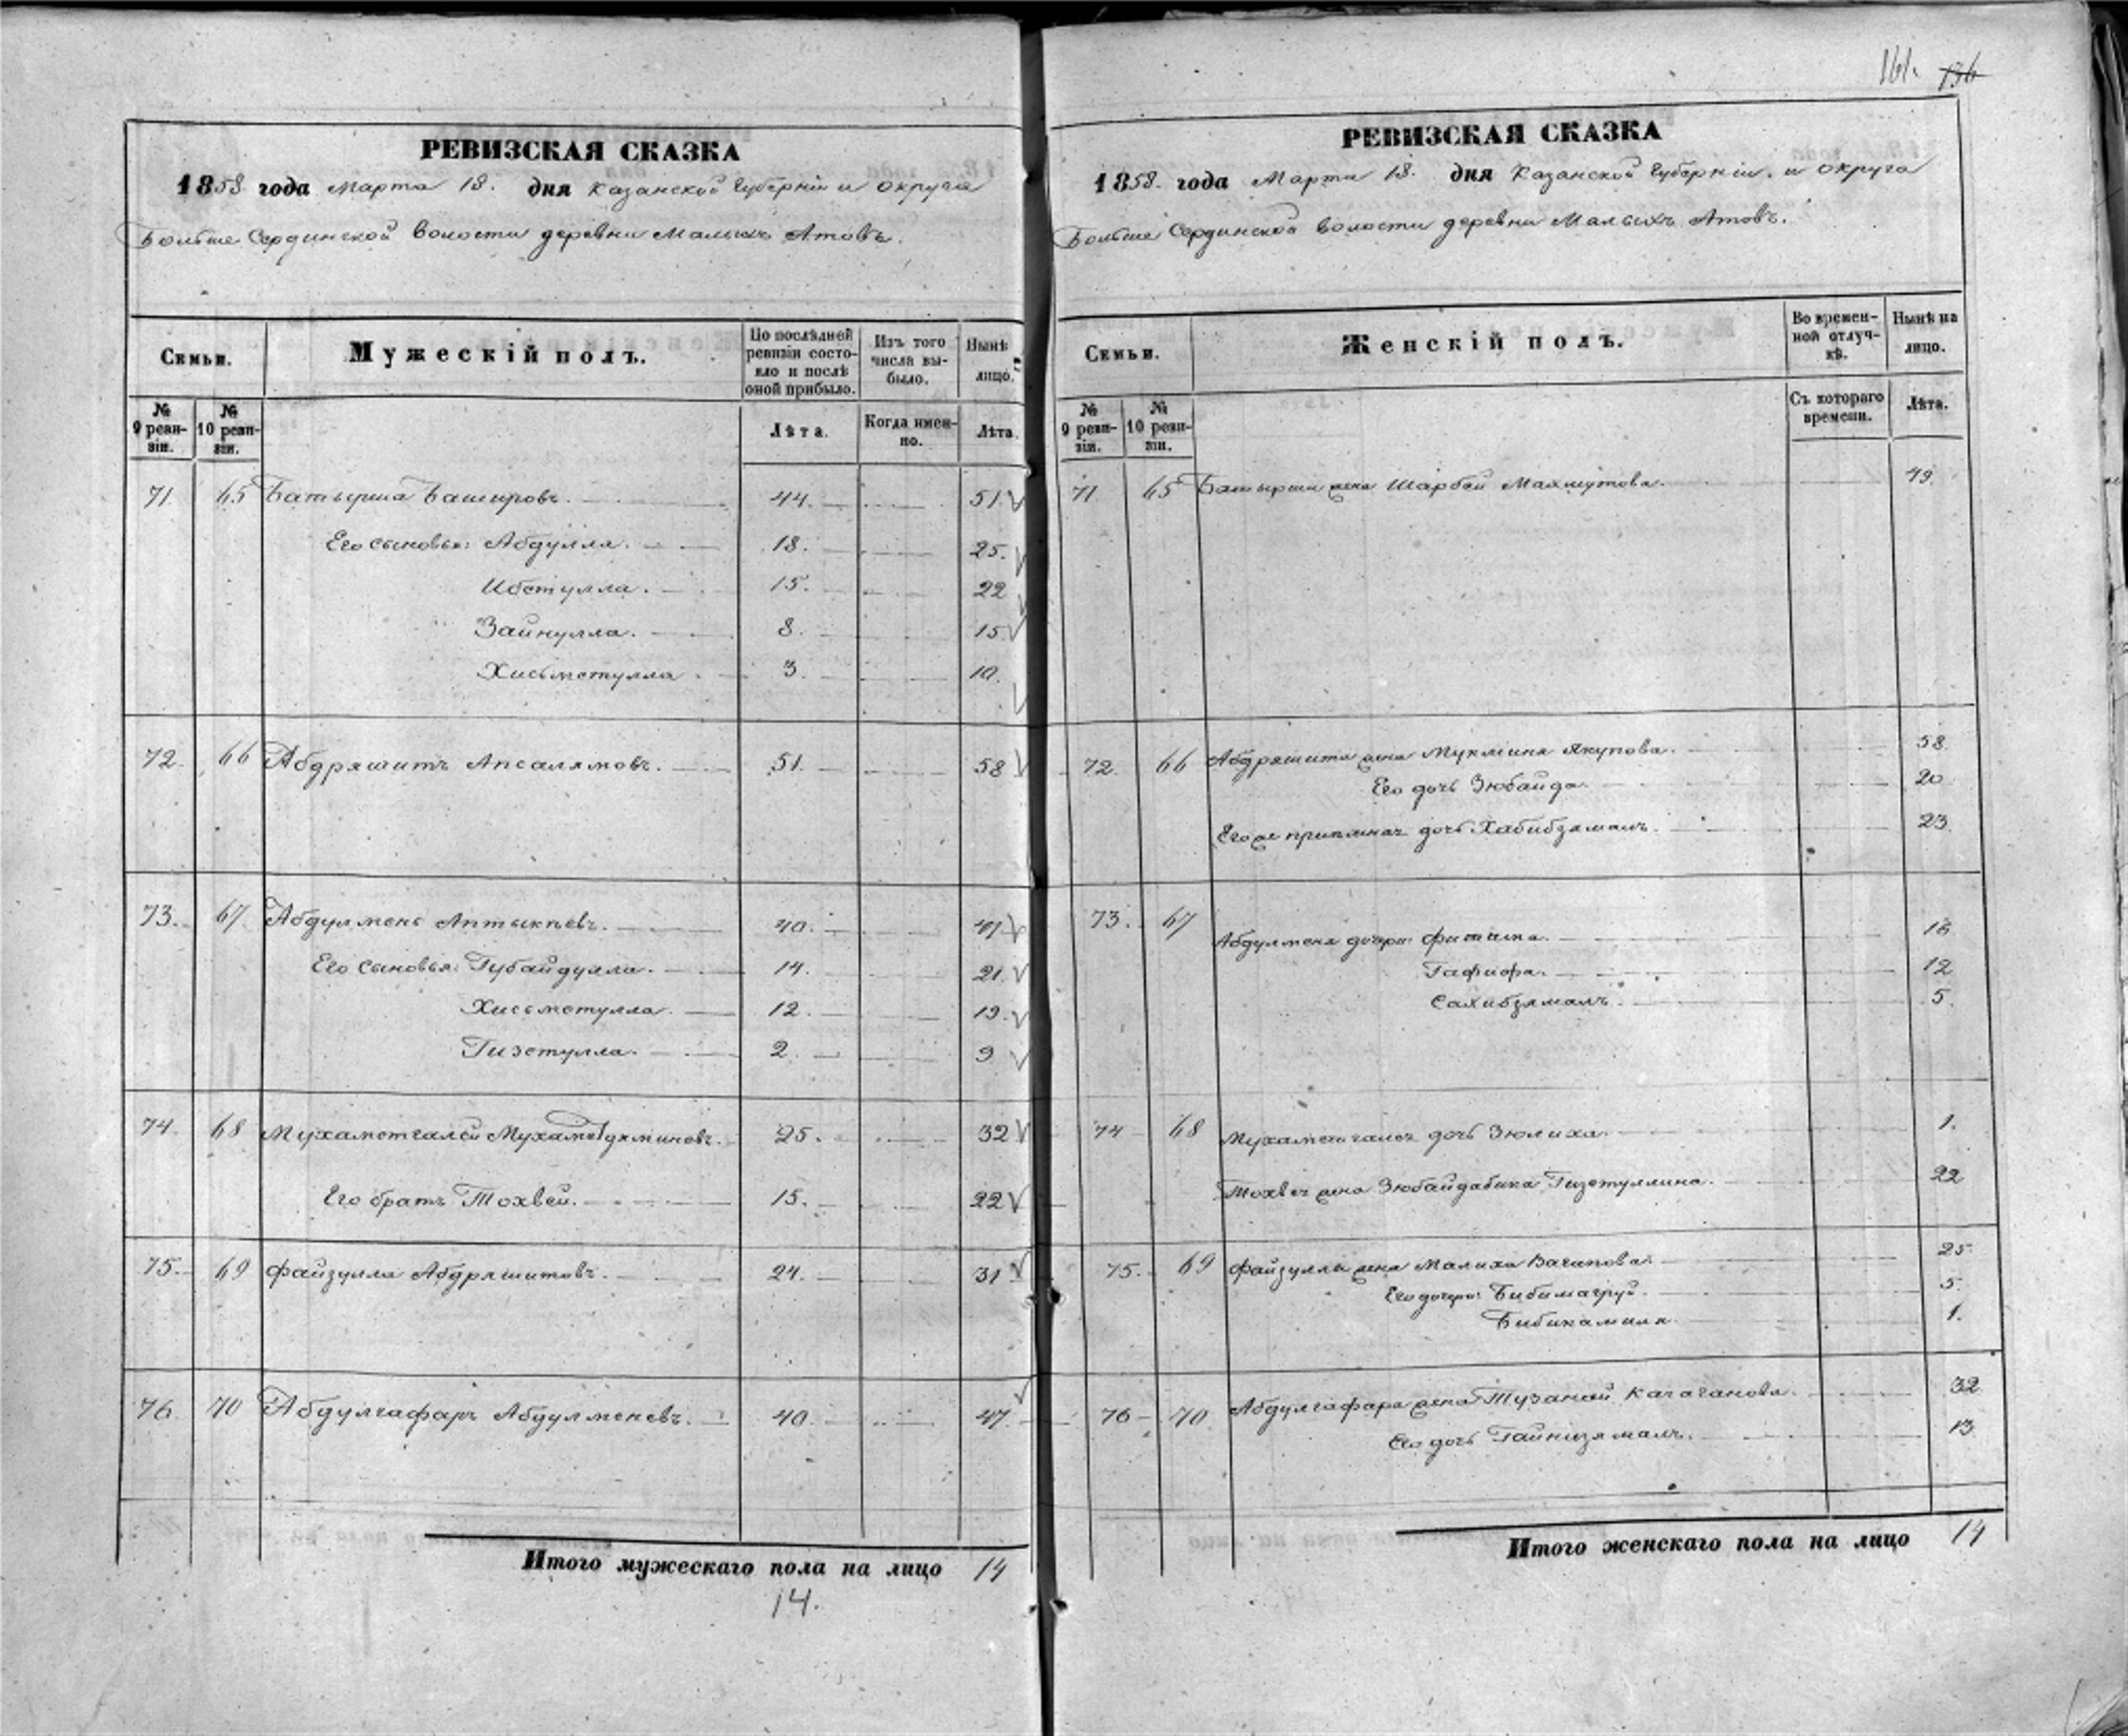 РЕВИЗСКАЯ СКАЗКА
1858 года Марта 18. дня Казанской Губерніи и округа
Больше Сердинской волости деревни Малыхъ Атовъ.
Семьи.
Мужескій полъ.
По послѣдней ревизіи состояло и послѣ оной прибыло.
Изъ того числа выбыло.
Нынѣ лицо.
№ 9 ревизіи.
№ 10 ревизіи.
Лѣта.
Когда именно.
Лѣта.
71. 65 Батырша Башировъ. 44. 51.
Его сыновья: Абдулла. 18. 25.
Ибетулла. 15. 22
Зайнулла. 8. 15
Хисьметулла 3. 10.
72. 66 Абдряшитъ Апсалямовъ. 51. 58
73. 67. Абдулмень Аптыкѣевъ. 40. 47
Его сыновья: Губайдулла. 14. 21.
Хисьметулла. 12. 19.
Гизетулла. 2. 9
74. 68 Мухаметгалей Мухаметдяминовъ. 25. 32
Его братъ Тохвей. 15. 22
75. 69 Файзулла Абдряшитовъ. 24. 31
76. 70 Абдулгафаръ Абдулменевъ. 40. 47.
Итого мужескаго пола на лицо 14
14.
161. 136
РЕВИЗСКАЯ СКАЗКА
1858. года Марта 18. дня Казанской Губерніи. и округа
Больше Сердинской волости деревни Малыхъ Атовъ.
Семьи.
Женскій полъ.
Во временной отлучкѣ.
Нынѣ на лицо.
№ 9 ревизіи.
№ 10 ревизіи.
Съ котораго времени.
Лѣта.
71. 65 Батырши жена Шарбей Махмутова. 49.
72. 66 Абдряшита жена Мукмина Якупова. 58.
Его дочь Зюбайда. 20
Его же дочь Хабибзямалъ. 23.
73. 67 Абдулменя дочери: Фатима. 16
Гафифа. 12
Сахибзямалъ. 5.
74 68 Мухаметгалея дочь Зюлиха. 1.
Тохвея жена Зюбайдабика Гизетуллина. 22
75. 69 Файзуллы жена Малиха Вагапова. 25.
Его дочери: Бибимагруй. 5.
Бибикамиля 1.
76 70 Абдулгафара жена 32
Его дочь Гайнизямалъ. 13
Итого женскаго пола на лицо 14